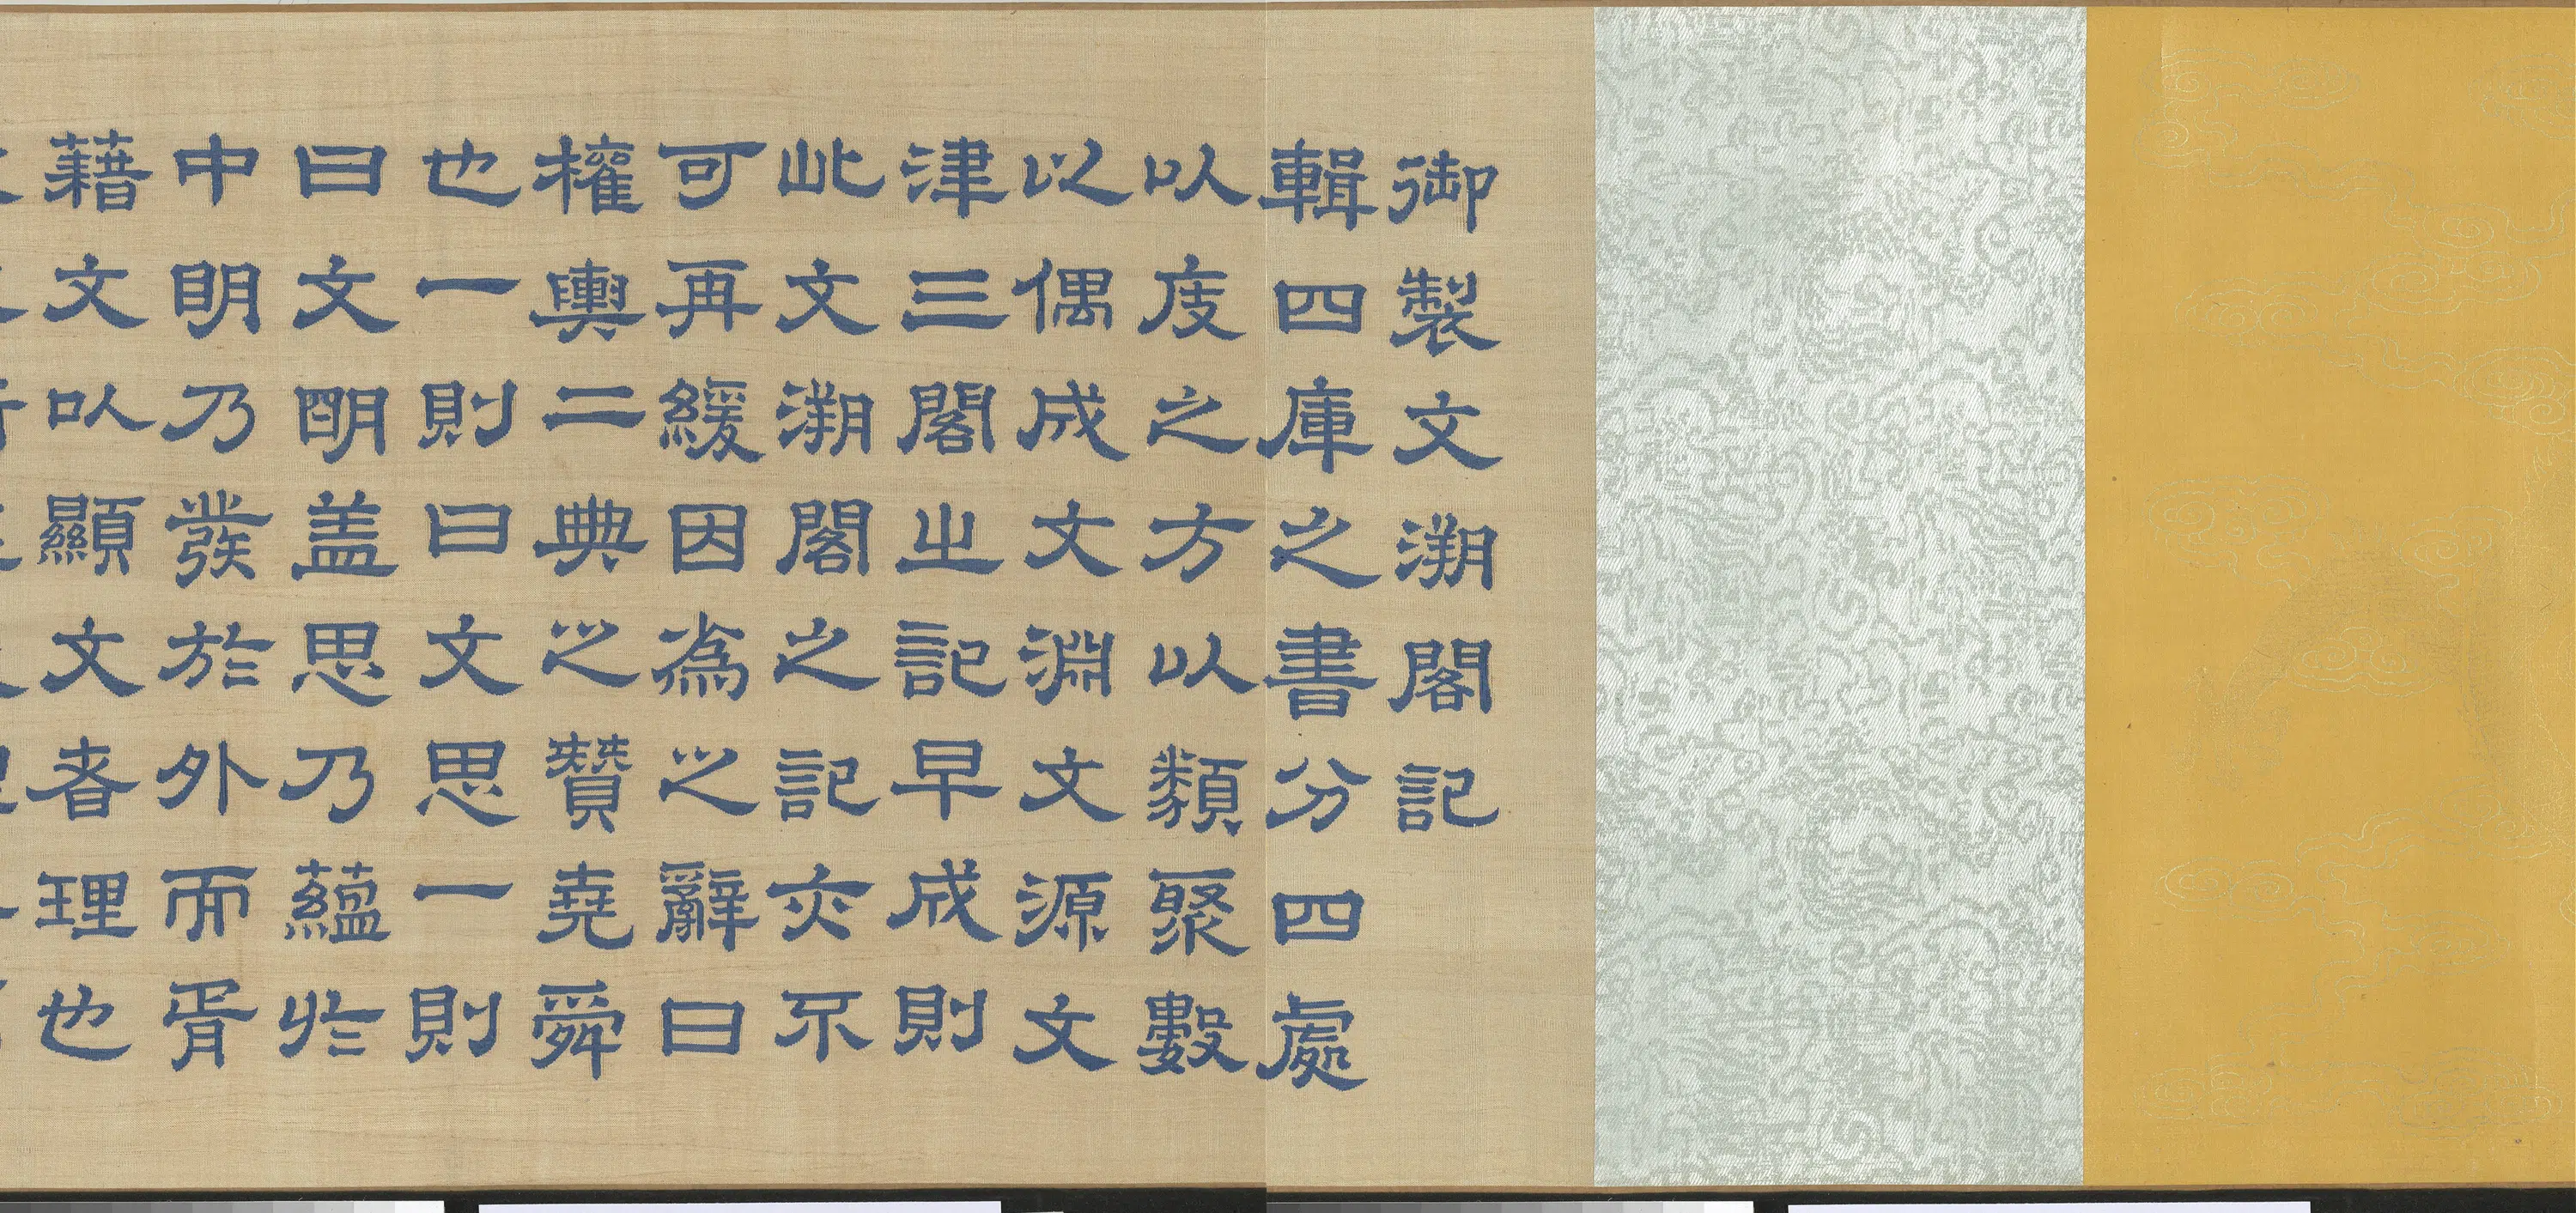 御製文溯閣記
輯四庫之書分四處
以庋之方以類聚數
以偶成文淵文源文
津三閣之記早成則
此文溯閣之記亦不
可再緩因為之辭曰
權輿二典之贊堯舜
也一則曰文思一則
曰文明盖思乃蘊於
中明乃發於外而胥
藉文以顯文者理也